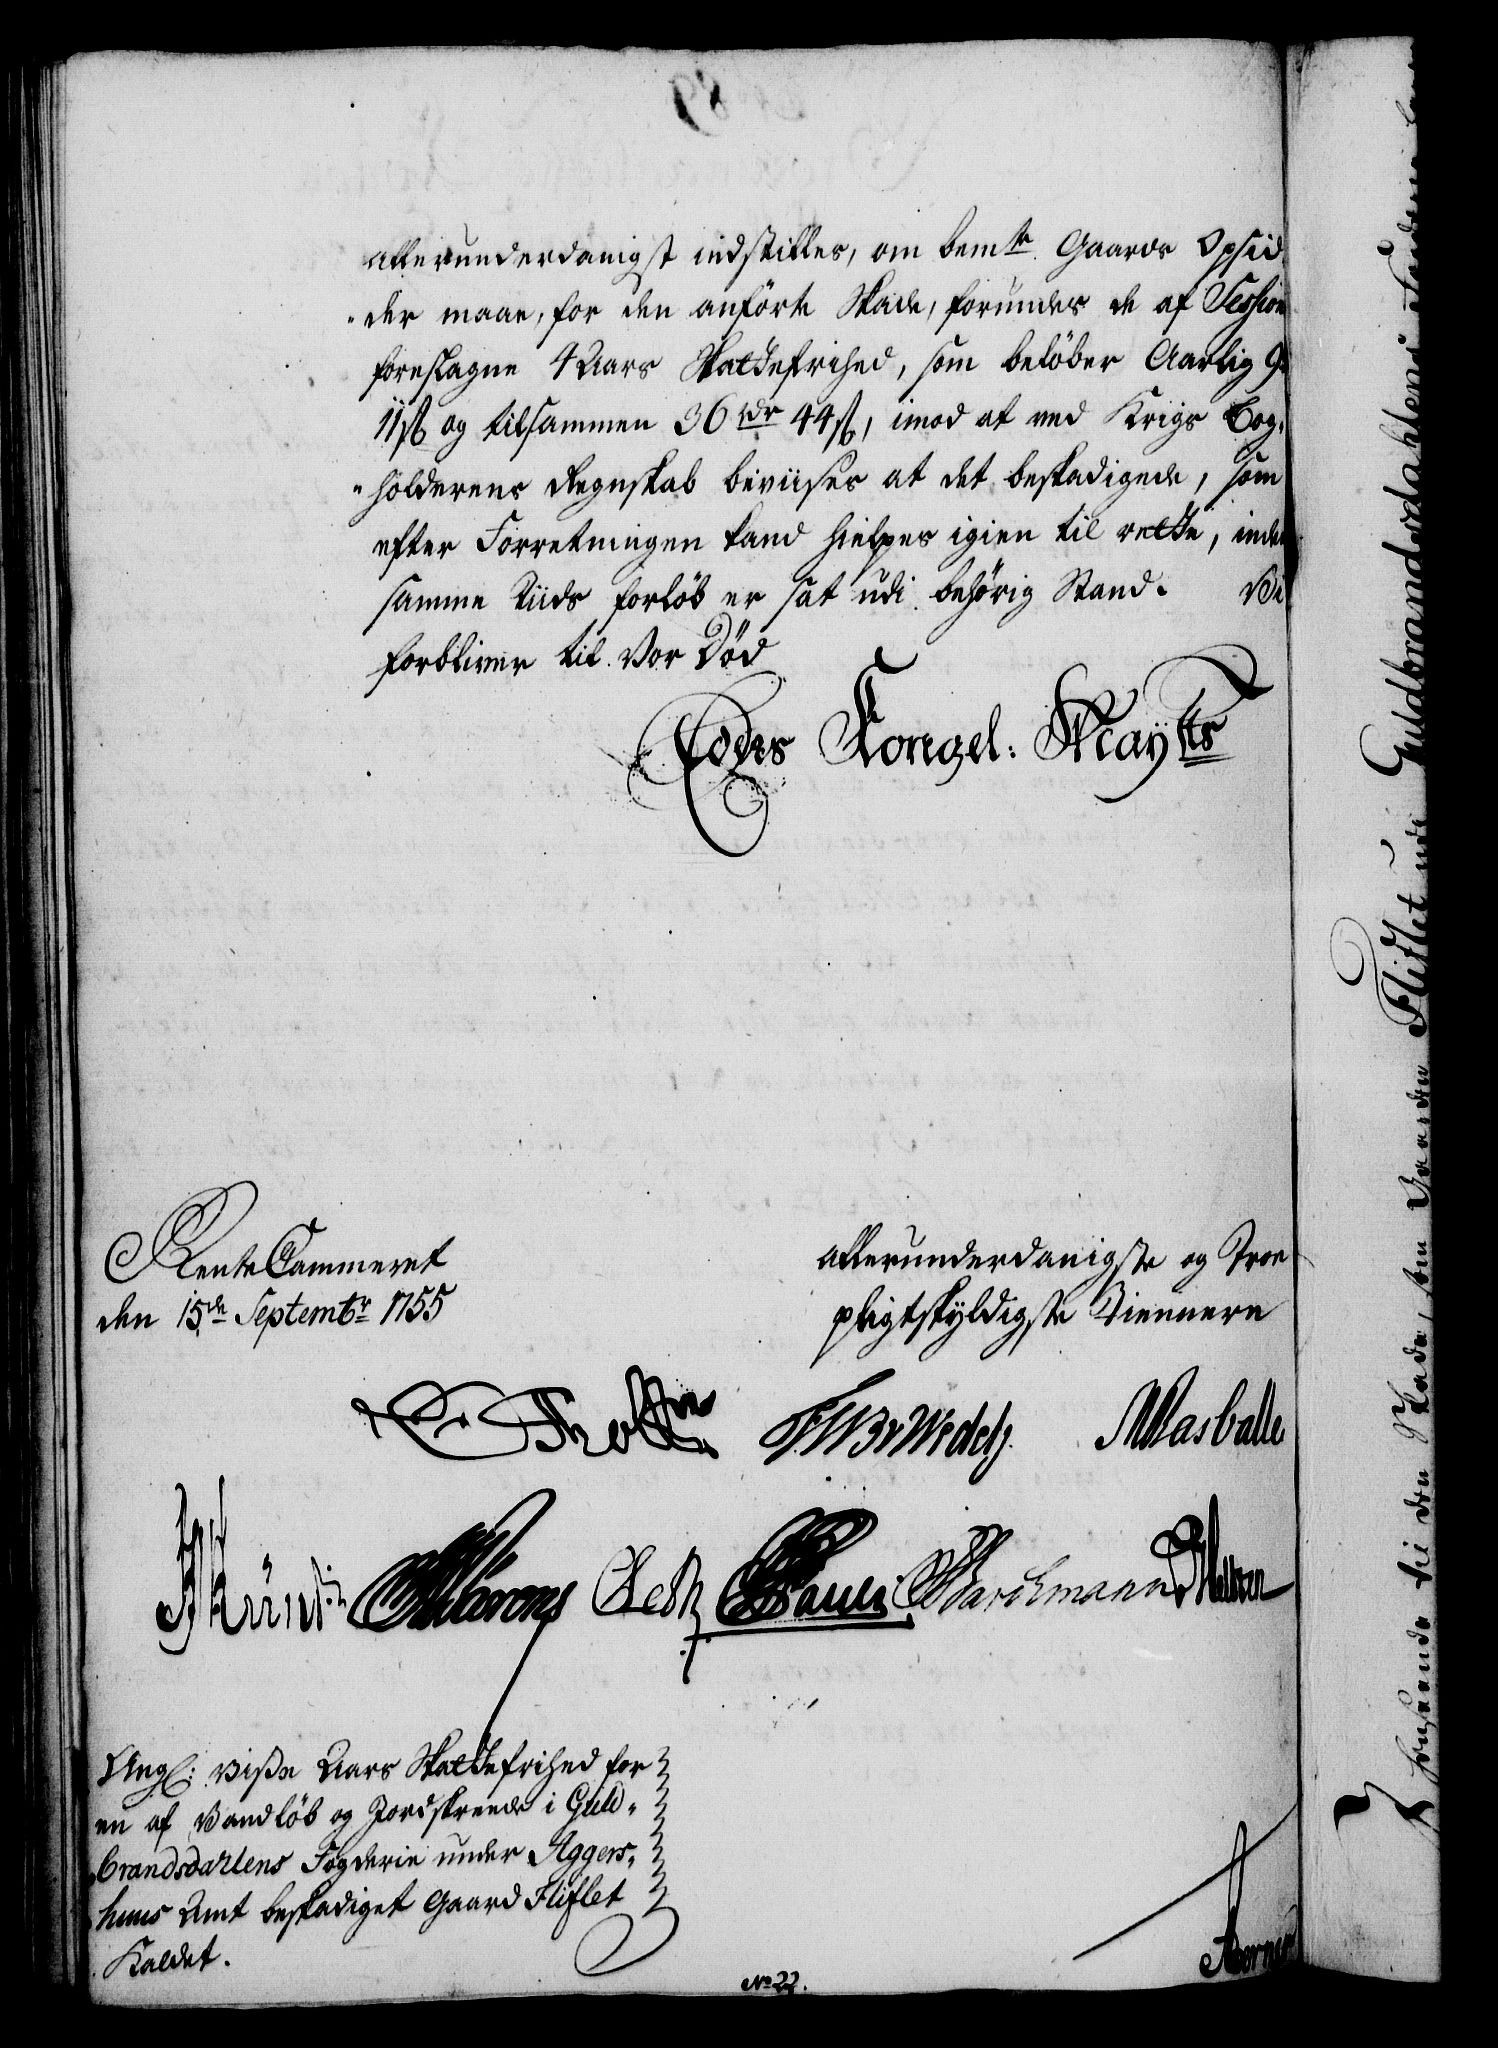 allerunderdanigst indstilles, om bemte Gaards Opsid
-der maae, for den anførte Skade, forundes de af Session
foreslagne 4 Aars Skattefrihed, som beløber Aarlig 9
11ß og tilsammen 36 rdr 44ß, imod at ved Krigs Bog-
-holderens Regnskab beviises at det beskadigede, som
efter Forretningen kand hielpes igien til rette, inden
samme Tiids forløb er sat udi behørig Stand. Vi
forbliver til Vor Død
Eders Kongel: Mayts
RenteCammeret
den 15de Septembr 1755
allerunderdanigste og Troe
pligtskyldigste Tiennere
Holst
FWBvWedel
Masballe
Pauli
Barchmann
Angl: visse Aars Skattefrihed for
en af Vandløb og Jordskreede i Guld-
brandsdahlens Fogderie under Aggers-
huus Amt beskadiget Gaard Fliflet
Kaldet.
No 22.
Henseende til den Skade, som Gaarden Fliflet udi Guldbrandsdahlens